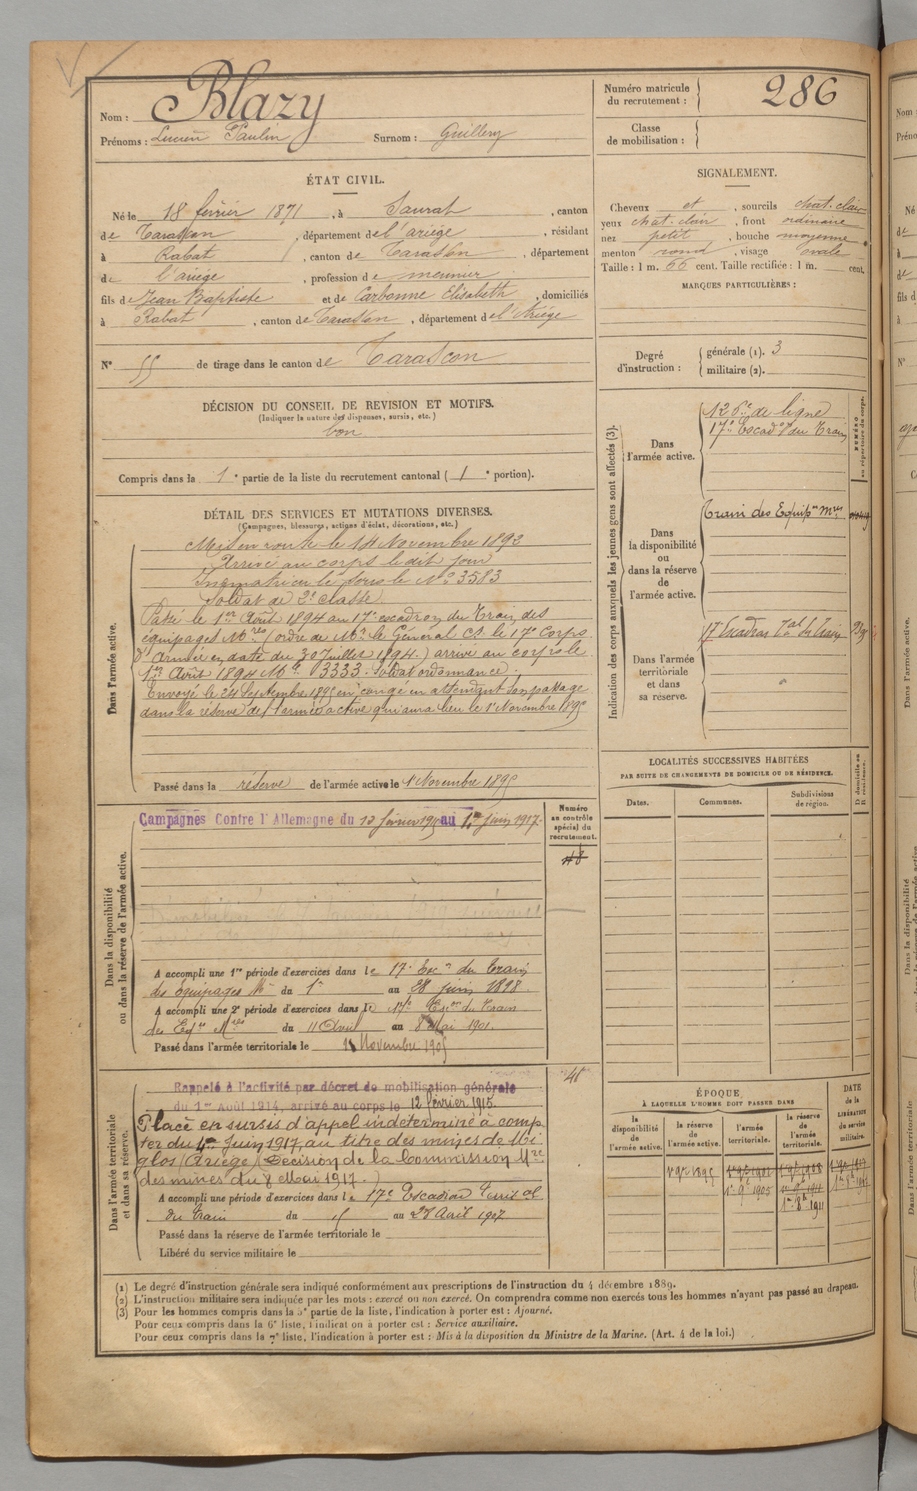 Nom : Blazy
Prénoms : Lucien Paulin Surnom : Guillem
Numéro matricule du recrutement : 286
Classe de mobilisation :
ÉTAT CIVIL.
Né le 18 février 1871, à Saurat, canton
de Tarascon, département de l'ariège, résidant
à Rabat, canton de Tarascon, département
de l'ariège, profession de meunier
fils de Jean Baptiste et de Carbonne Elisabeth, domiciliés
à Rabat, canton de Tarascon, département de l'Ariège
N° 55 de tirage dans le canton de Tarascon
SIGNALEMENT.
Cheveux et, sourcils chat. clair
yeux chat. clair, front ordinaire
nez petit, bouche moyenne
menton rond, visage ovale
Taille : 1 m. 66 cent. Taille rectifiée : 1 m. cent.
MARQUES PARTICULIÈRES :
Degré d'instruction :
générale (1). 3
militaire (2).
DÉCISION DU CONSEIL DE REVISION ET MOTIFS.
(Indiquer la nature des dispenses, sursis, etc.)
bon
Compris dans la 1e partie de la liste du recrutement cantonal (1e portion).
DÉTAIL DES SERVICES ET MUTATIONS DIVERSES.
(Campagnes, blessures, actions d'éclat, décorations, etc.)
Dans l'armée active.
Mis en route le 14 Novembre 1892
Arrivé au corps le dit jour
Immatriculé sous le No 3583
Soldat de 2e classe
Passé le 1er Août 1894 au 17e escadron du Train des
équipages Mres (ordre de Mr le Général Ct le 17e Corps
d'Armée en date du 30 Juillet 1894.) arrivé au corps le
1er Août 1894 No 3333. Soldat ordonnance.
Envoyé le 24 Septembre 1895 en congé en attendant son passage
dans la réserve de l'armée active qui aura lieu le 1er Novembre 1895
Passé dans la réserve de l'armée active le 1er Novembre 1895
Indication des corps auxquels les jeunes gens sont affectés (3).
NUMÉRO au répertoire du corps.
Dans l'armée active.
126e de ligne
17e Escadon du Train
Dans la disponibilité ou dans la réserve de l'armée active.
Train des Equip. Mres
Dans l'armée territoriale et dans sa réserve.
17 Escadron Tal du Train
LOCALITÉS SUCCESSIVES HABITÉES
PAR SUITE DE CHANGEMENTS DE DOMICILE OU DE RÉSIDENCE.
Dates. Communes. Subdivisions de région. D domicile ou R résidence.
Dans la disponibilité ou dans la réserve de l'armée active.
Campagnes Contre l'Allemagne du 12 février 1915 au 1er Juin 1917.
Numéro au contrôle spécial du recrutement.
48
A accompli une 1re période d'exercices dans le 17e Escn du Train
des Equipages Mres du 1er au 28 Juin 1898
A accompli une 2e période d'exercices dans le 17e Escon du Train
des Eqes Mres du 11 Avril au 8 Mai 1901.
Passé dans l'armée territoriale le 1er Novembre 1905
Dans l'armée territoriale et dans sa réserve.
Rappelé à l'activité par décret de mobilisation générale
du 1er Août 1914, arrivé au corps le 12 février 1915.
Placé en sursis d'appel indeterminé à comp-
ter du 1er Juin 1917 au titre des mines de Mi-
glos (Ariège) (Décision de la Commission Mre
des mines du 8 Mai 1917.)
A accompli une période d'exercices dans le 17e Escadron Territ al
du Train du 15 au 27 Avril 1907
Passé dans la réserve de l'armée territoriale le
Libéré du service militaire le
ÉPOQUE
À LAQUELLE L'HOMME DOIT PASSER DANS
la disponibilité de l'armée active.
la réserve de l'armée active.
l'armée territoriale.
la réserve de l'armée territoriale.
DATE de la LIBÉRATION du service militaire.
1er 9bre 1895
1er 9bre 1905
1er 8bre 1911
(1) Le degré d'instruction générale sera indiqué conformément aux prescriptions de l'instruction du 4 décembre 1889.
(2) L'instruction militaire sera indiquée par les mots : exercé ou non exercé. On comprendra comme non exercés tous les hommes n'ayant pas passé au drapeau.
(3) Pour les hommes compris dans la 5e partie de la liste, l'indication à porter est : Ajourné.
Pour ceux compris dans la 6e liste, l'indication à porter est : Service auxiliaire.
Pour ceux compris dans la 7e liste, l'indication à porter est : Mis à la disposition du Ministre de la Marine. (Art. 4 de la loi.)